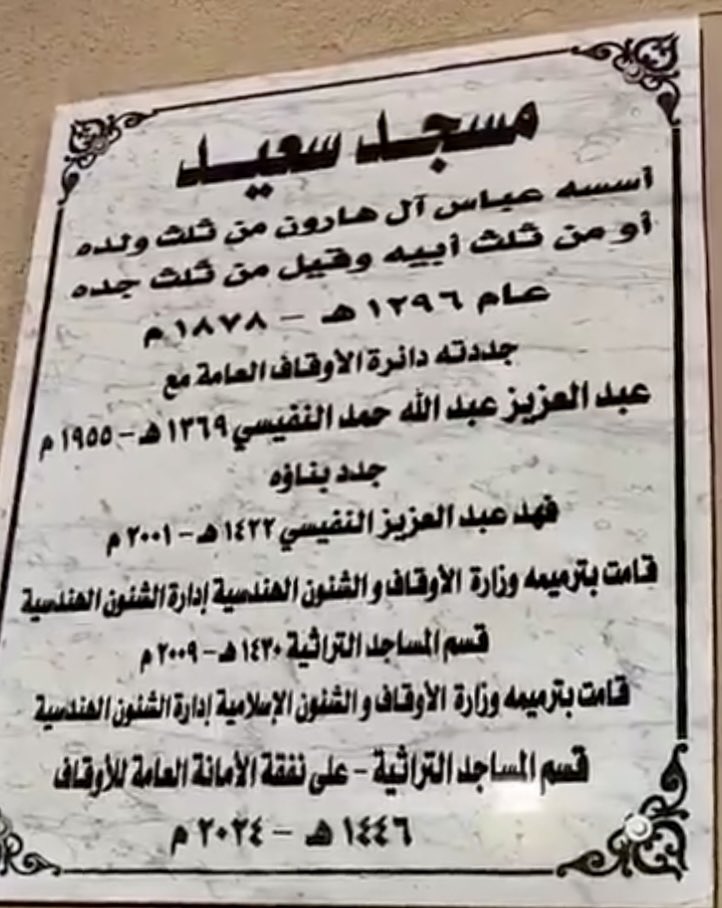 مسجد سعيد
أسسه عباس آل هارون من ثلث ولده
أو من ثلث أبيه وقيل من ثلث جده
عام ١٢٩٦ هـ - ١٨٧٨ م
جددته دائرة الأوقاف العامة مع
عبد العزيز عبد الله حمد النفيسي ١٣٦٩ هـ - ١٩٥٥ م
جدد بناؤه
فهد عبد العزيز النفيسي ١٤٢٢ هـ - ٢٠٠١ م
قامت بترميمه وزارة الأوقاف و الشئون الهندسية إدارة الشئون الهندسية
قسم المساجد التراثية ١٤٣٠ هـ - ٢٠٠٩ م
قامت بترميمه وزارة الأوقاف و الشئون الإسلامية إدارة الشئون الهندسية
قسم المساجد التراثية - على نفقة الأمانة العامة للأوقاف
١٤٤٦ هـ - ٢٠٢٤ م